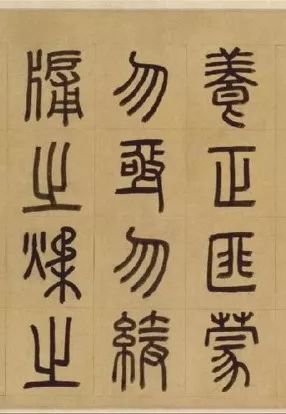 養正匪蒙
勿亟勿緩
牖之之